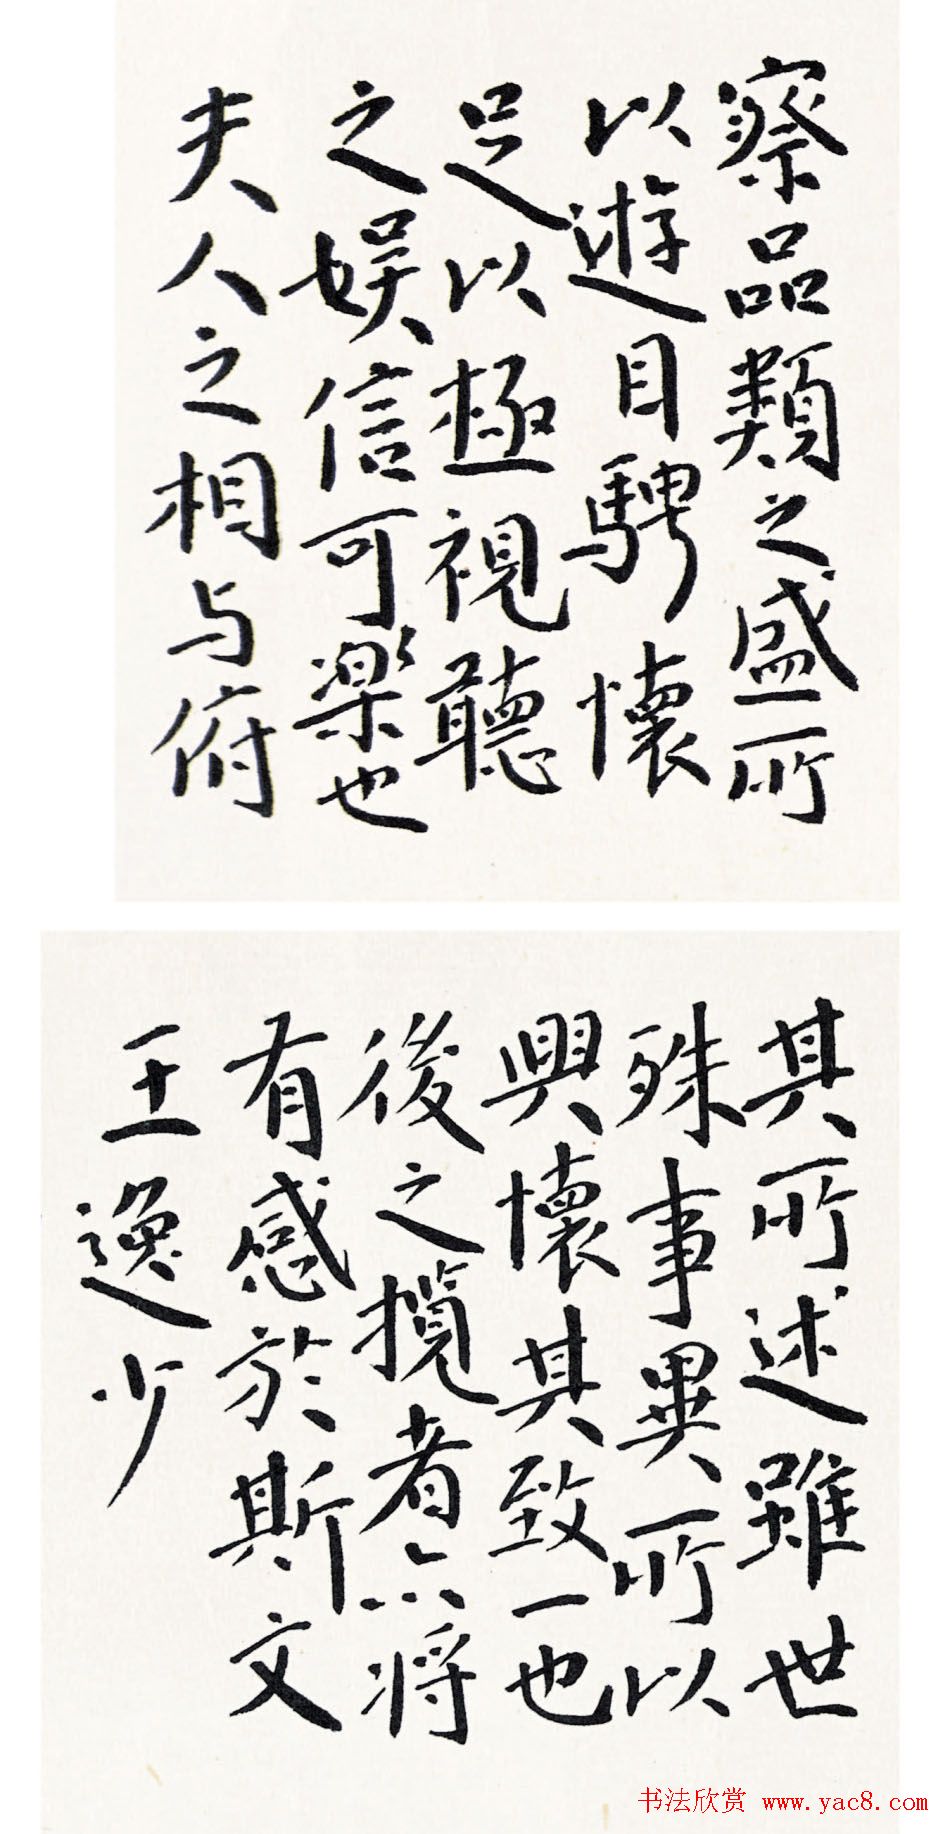 察品類之盛所
以遊目騁懷
足以極視聽
之娛信可樂也
夫人之相与俯
其所述雖世
殊事異所以
興懷其致一也
後之攬者亦将
有感於斯文
王逸少
书法欣赏 www.yac8.com